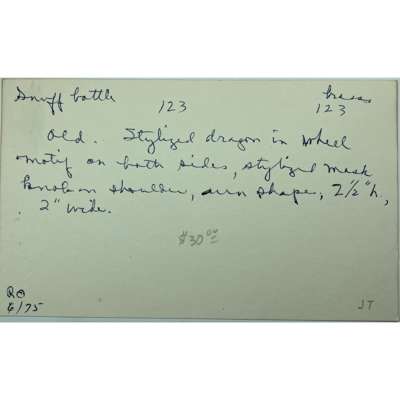 Snuff bottle
brass
123
123
Old. Stylized dragon in wheel
motif on both sides, stylized mask
knob on shoulder, urn shape, 2½" h.,
2" wide.
$30.00
RO
6/75
JT